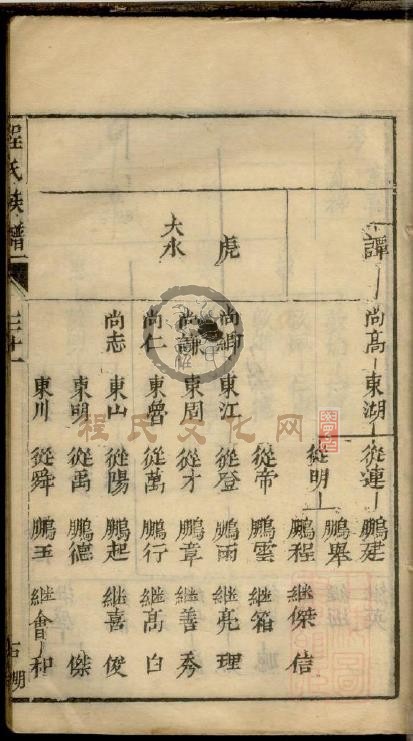 譚 尚高 東湖 從連 鵬建
鵬舉
從明 鵬程 繼傑 信
從帝 鵬雲 繼箱
虎 東江 從登 鵬雨 繼亮 理
東周 從才 鵬章 繼善 秀
大永 尚仁 東魯 從萬 鵬行 繼高 白
尚志 東山 從陽 鵬起 繼喜 俊
東明 從禹 鵬德 傑
東川 從舜 鵬王 繼會 和
程氏族譜 三十一
程民文化网